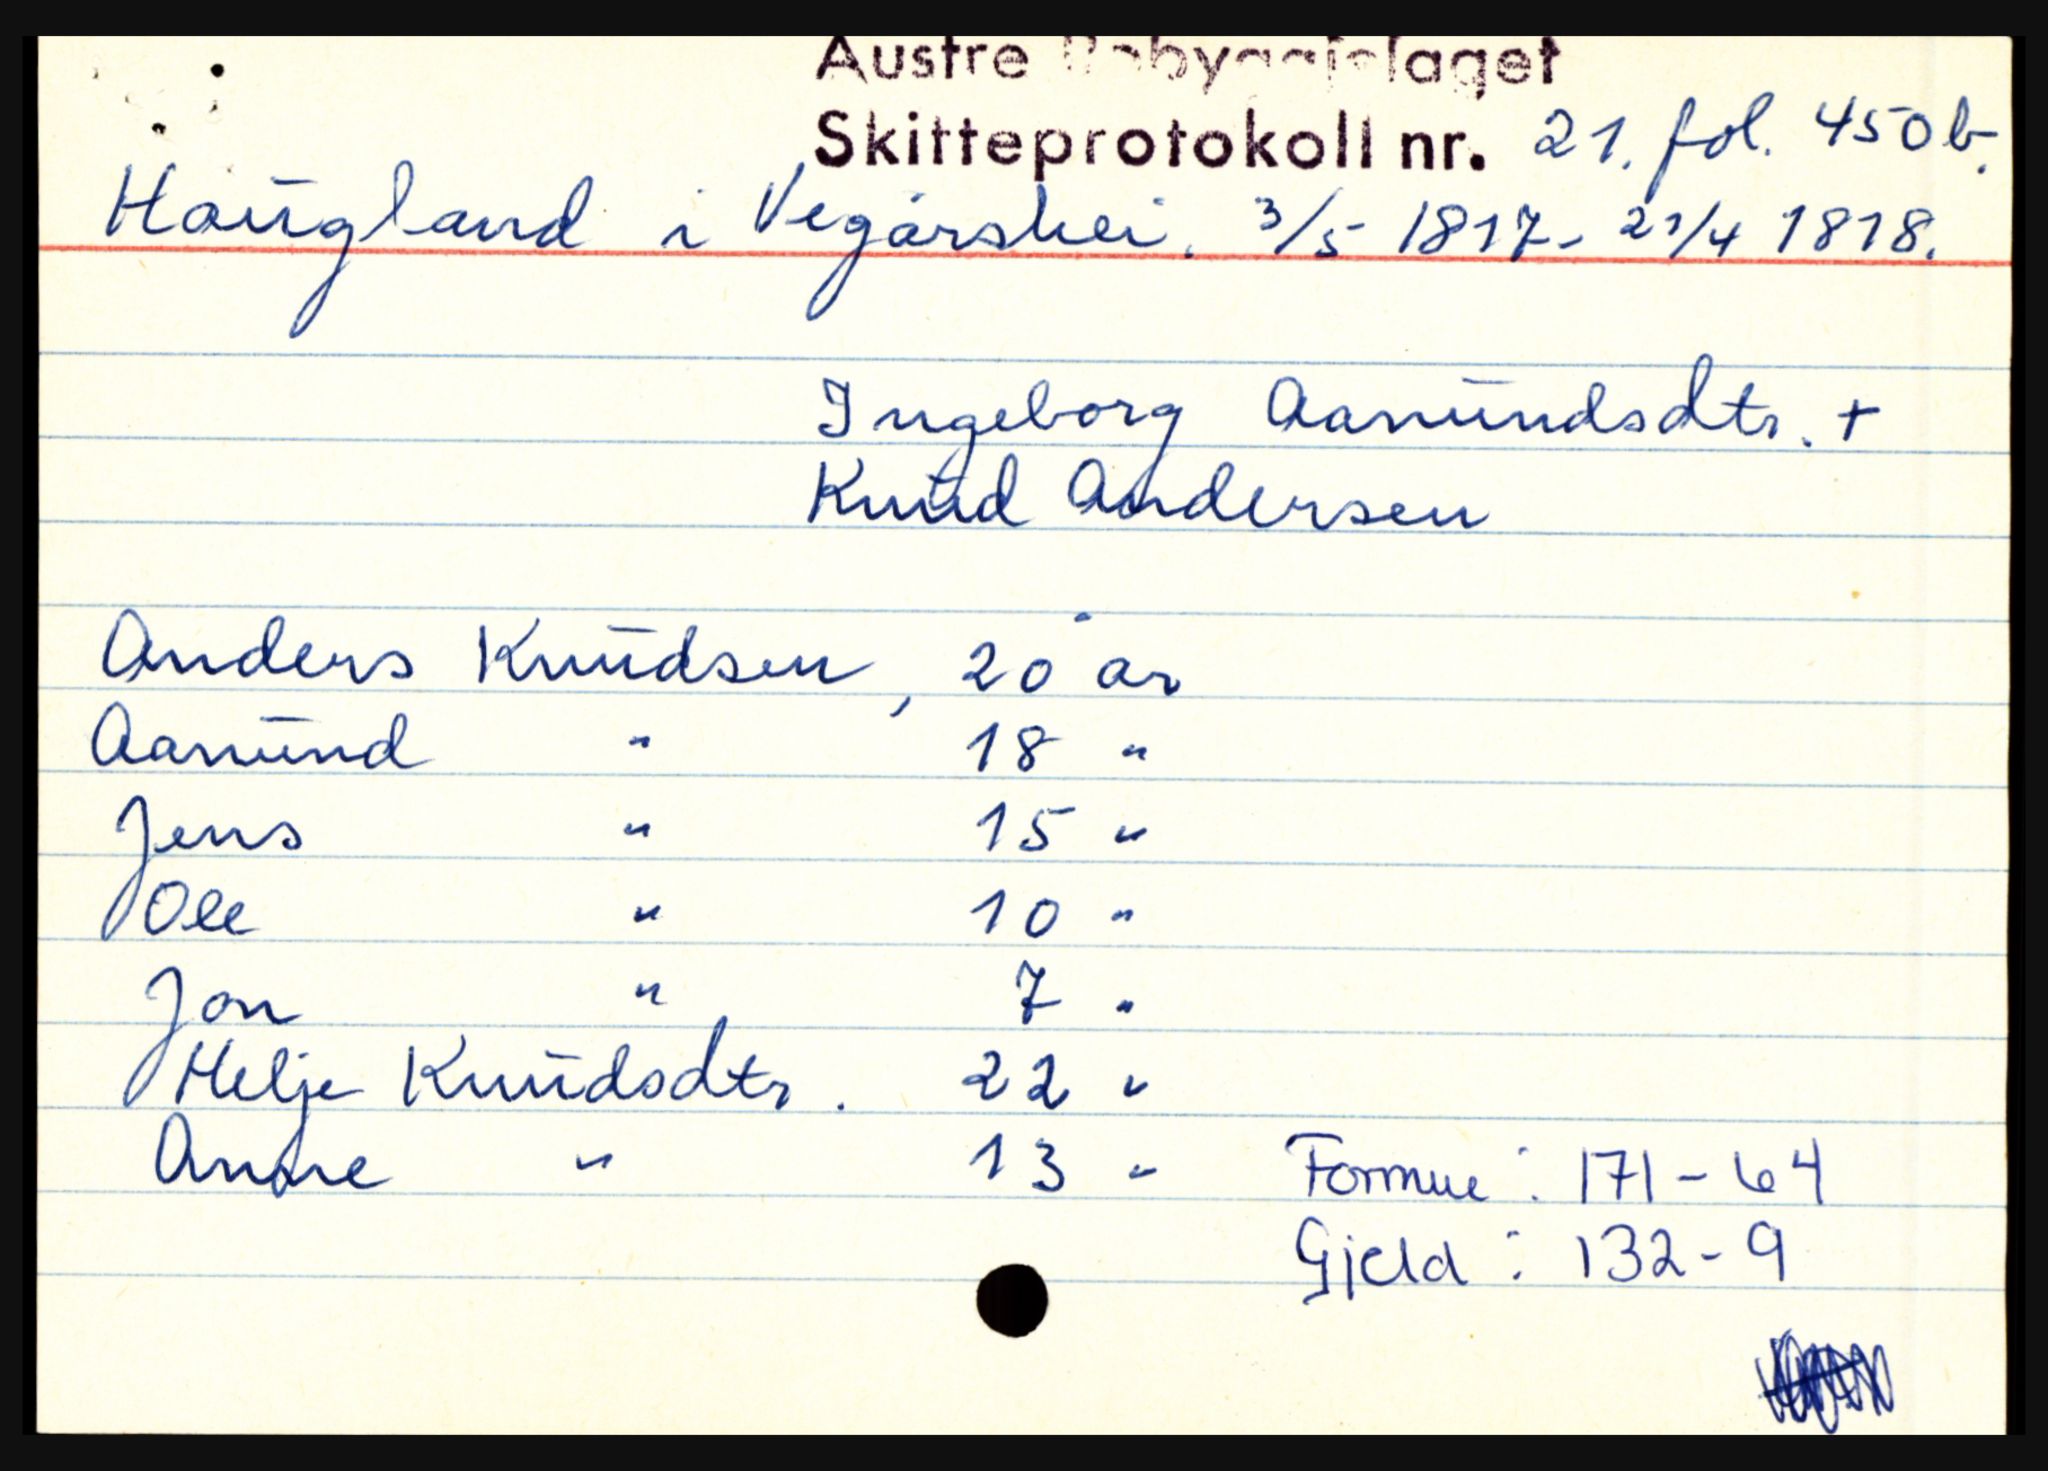 Austre Robyggjelaget
Skifteprotokoll nr. 21. fol. 450b.
Haugland i Vegårshei. 3/5 1817 - 21/4 1818.
Ingeborg Aanundsdtr. +
Knud Andersen
Anders Knudsen, 20 år
Aanund " 18 "
Jens " 15 "
Ole " 10 "
Jon " 7 "
Helje Knudsdtr. 22 "
Anne " 13 " Formue : 171 - 64
Gjeld : 132 - 9